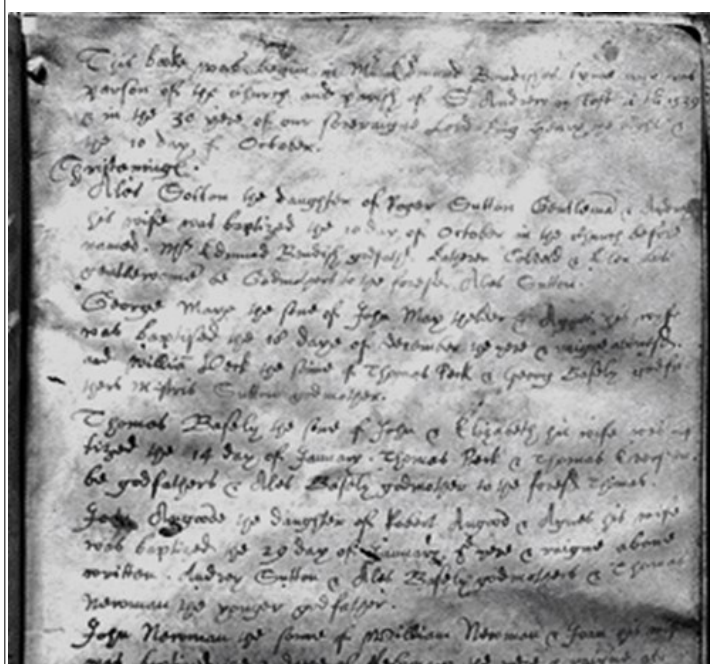 This booke was begun in Mr Edmund Bendish tyme who was
parson of the church and parish of St Andrew in 1539
& in the 30 yere of our soveraigne Lord King Henry the eight &
the 10 day of October.
Christninge.
Ales Sutton the daughter of Roger Sutton Gentlemā & Audrey
his wife was baptized the 10 day of October in the church before
named. Mr Edmund Bendish godfath & Ellen
gentlewomē be Godmothers to the foresd Ales Sutton.
George Maye the sone of John May the elder & Agnes his wife
was baptised the 18 daye of december the yere & raigne abovesd.
and Williā Peck the sonne of Thomas Peck & Georg Basely godfa
thers Mistris Sutton godmother.
Thomas Basely the sone of John & Elizabeth his wife was bap
tized the 14 day of January. Thomas Peck & Thomas
be godfathers & Ales Basely godmother to the foresd Thomas.
Joan Angoode the daughter of Robert Angood & Agnes his wife
was baptized the 29 day of January ye yere & raigne above
written. Audrey Sutton & Ales Basely godmothers & Thomas
Newman the yonger godfather.
John Newman the sonne of William Newman & Joan his wife
was baptized the daye of the yere